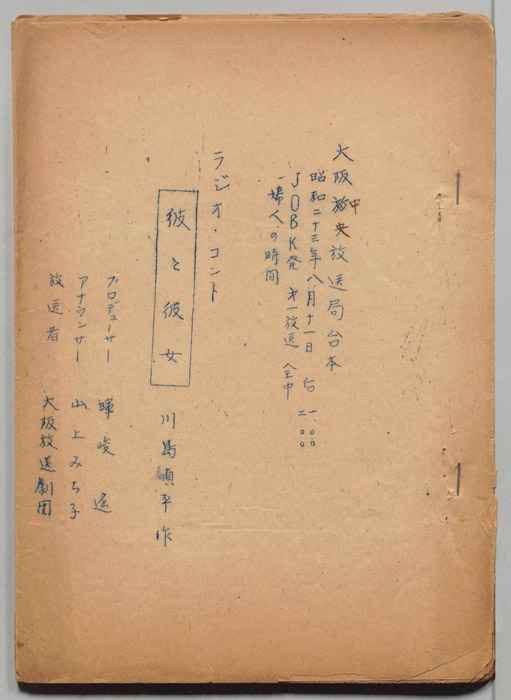 大阪中央放送局台本
昭和二十三年八月十一日 后 一.〇〇 二.〇〇
JOBK発 才一放送 全中
婦人の時間
ラジオ・コント
彼と彼女
川島順平作
プロデューサー 輝峻
アナウンサー 山上みち子
放送者 大阪放送劇団